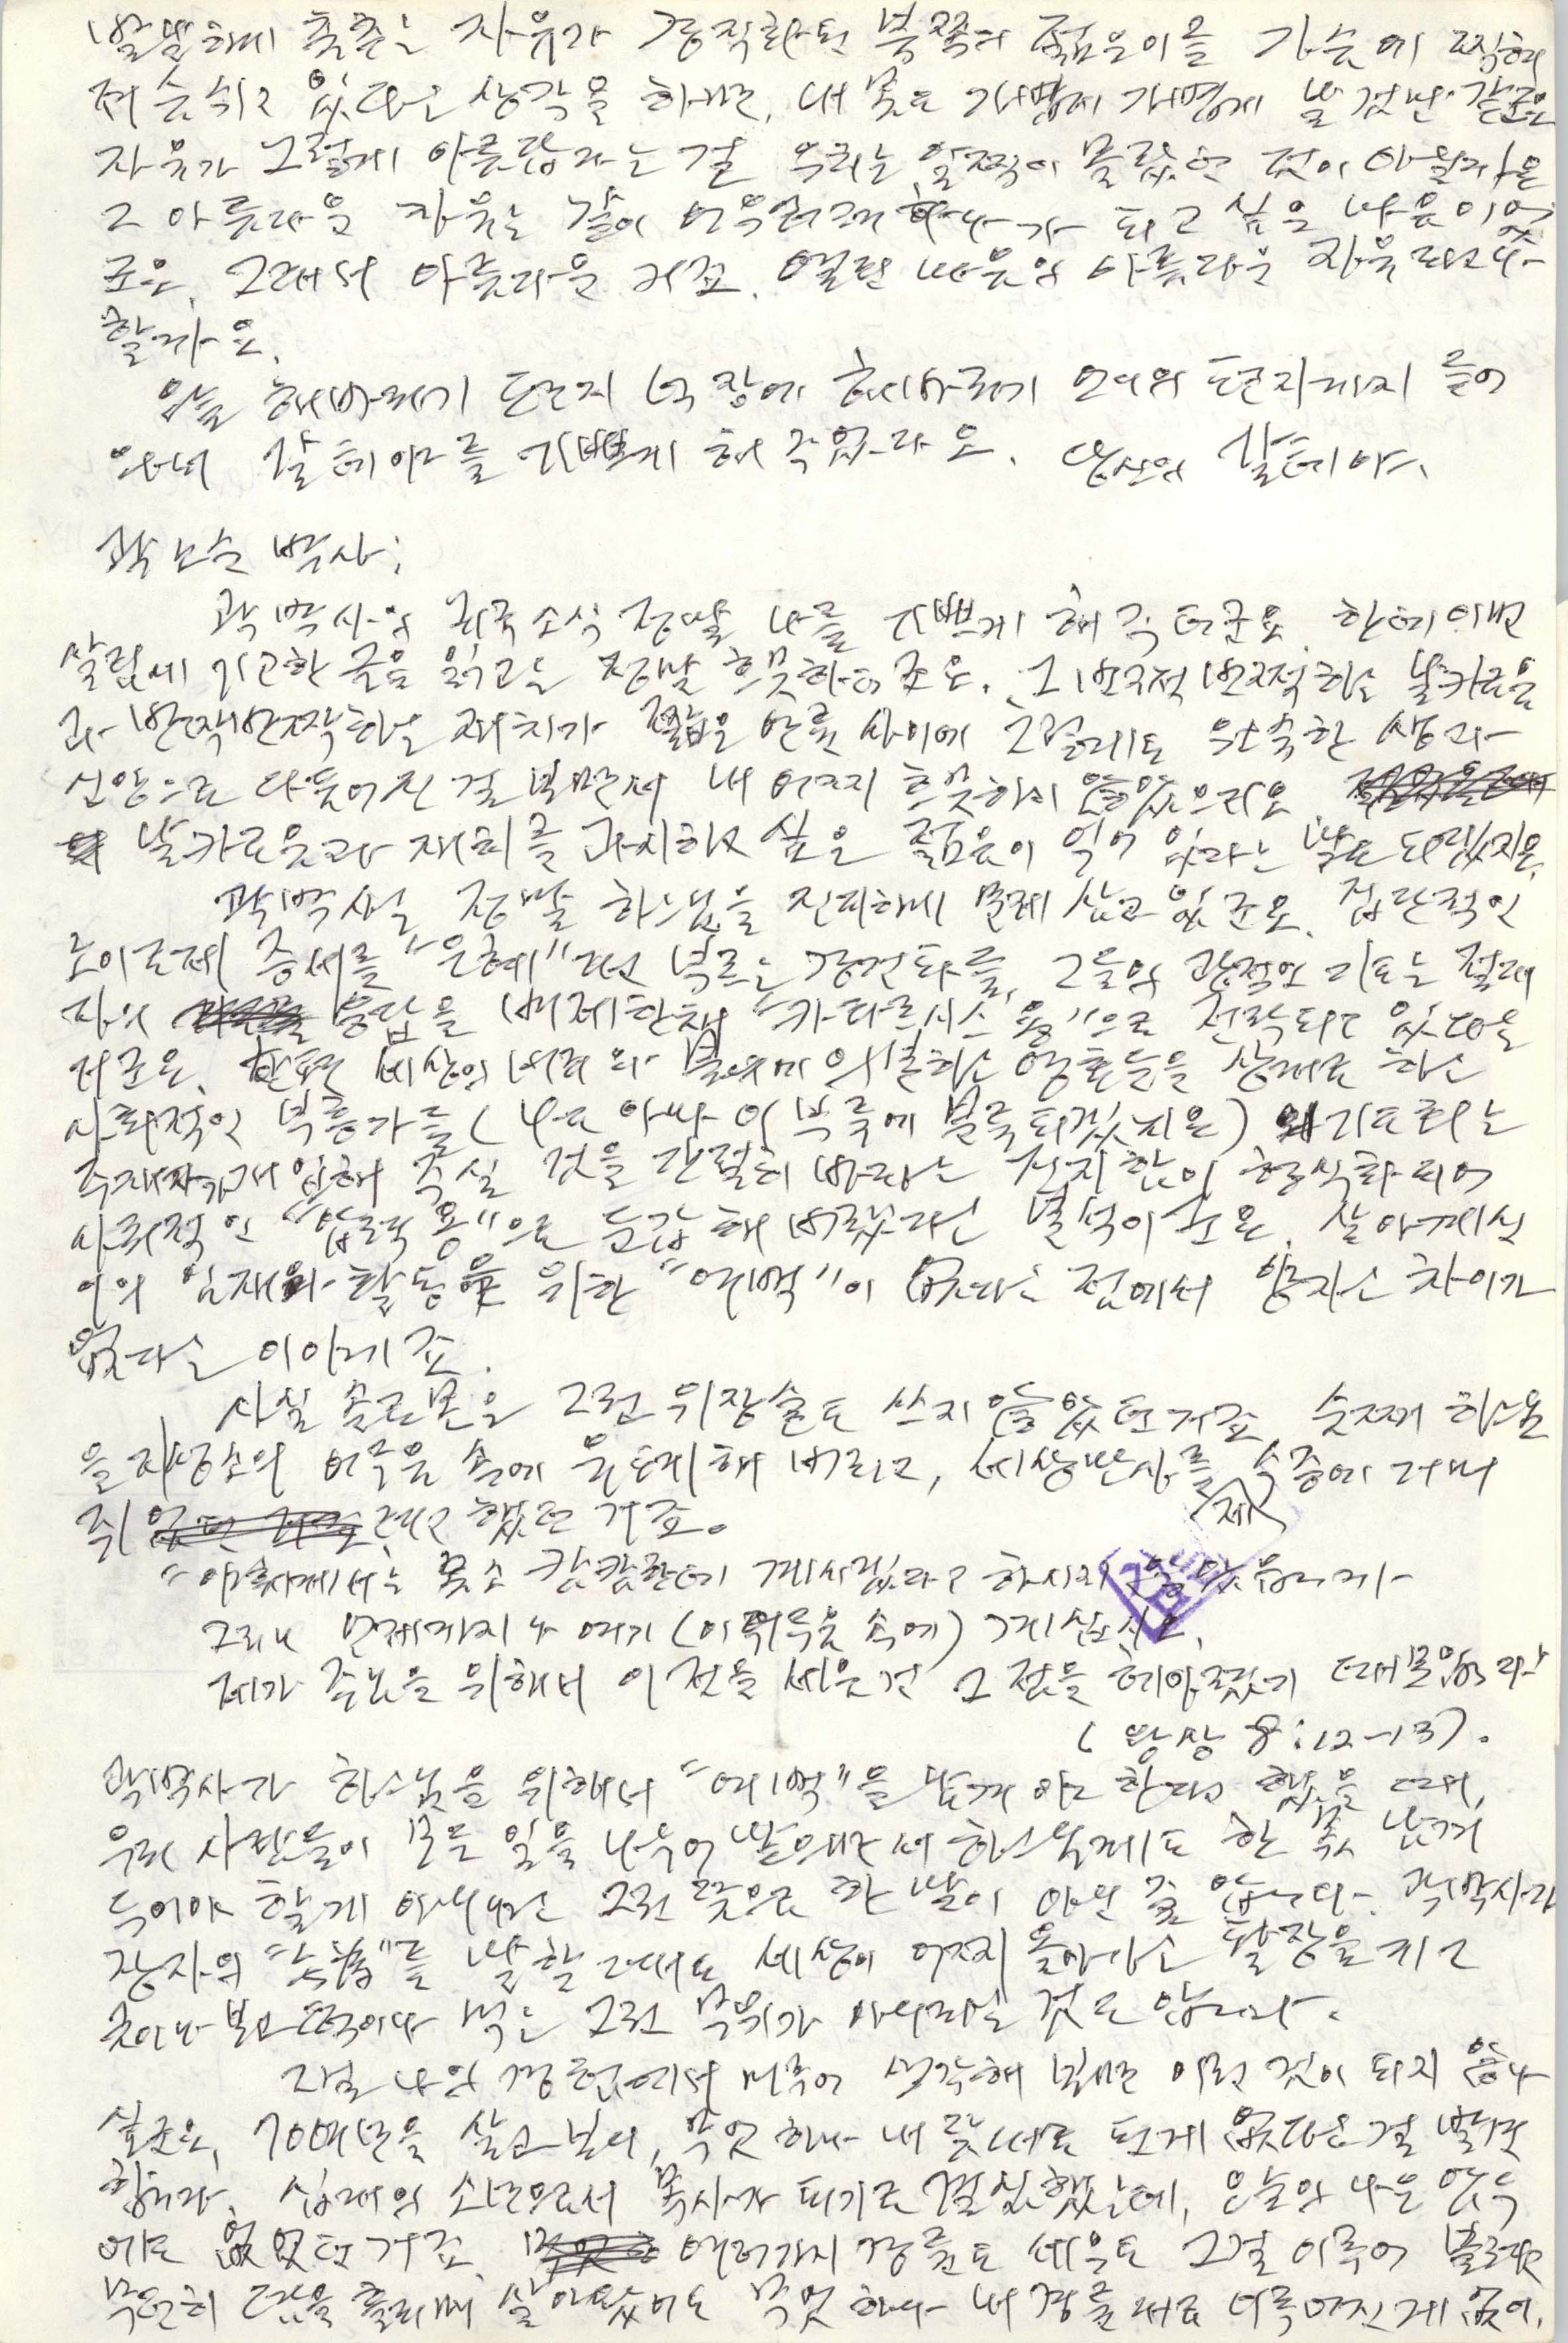 발랄하게 춤추는 자유가 경직화된 북쪽의 젊은이를 가슴에
숨쉬고 있다는 생각을 하면, 내 몸은 가볍게 가볍게 날 것만 같군요
자유가 그렇게 아름답다는 걸 우리는 일찍이 몰랐던 것이 아닐까요
그 아름다운 자유는 같이 어우러져 하나가 되고 싶은 마음이겠
군요. 그래서 아름다운 거죠. 열린 마음의 아름다운 자유라고나
할까요.
오늘 해바라기 편지 넉 장에 해바라기 오빠의 편지까지 들어
와서 갈테야를 기쁘게 해 주었다오. 당신의 갈테야.
곽노순 박사:
곽 박사의 귀국 소식 정말 나를 기쁘게 해 주더군요. 한데 이번
살림에 기고한 글을 읽고는 정말 흐뭇하더군요. 그 번적번적하는 날카로움
과 반짝반짝하는 재치가 짧은 한 사이에 그렇게도 원숙한 생각과
신앙으로 다듬어진 걸 보면서 내 어찌 흐뭇하지 않았으리오
날카로움과 재치를 과시하고 싶은 젊음이 익어 있다는 말도 되겠지요.
곽 박사는 정말 하느님을 진지하게 문제 삼고 있군요. 집단적인
노이로제 증세를 "은혜"라고 부르는 경건파들, 그들의 광적인 기도는 절대
자의 응답을 배제한 채 "카타르시스용"으로 전락되고 있다는
거군요. 한편 세상의 비리와 불의에 의분하는 영혼들을 상대로 하는
사회적인 부흥가들(나도 아마 이 부류에 분류되겠지요)의 기도회는
주재자가 개입해 주실 것을 간절히 바라는 진지함이 형식화되어
사회적인 "압력용"으로 둔갑해 버렸다는 분석이군요. 살아계신
이의 임재와 활동을 위한 "여백"이 없다는 점에서 양자는 차이가
없다는 이야기죠.
사실 솔로몬은 그런 위장술도 쓰지 않았던 거죠. 숫제 하느님
을 지성소의 어두움 속에 유폐해 버리고, 세상만사를 제 수중에 거머
쥐려고 했던 거죠.
"야훼께서는 몸소 캄캄한데 계시겠다고 하시지 않았습니까
그러니 언제까지나 여기(이 어두움 속에) 계십시오.
제가 주님을 위해서 이 전을 세운 건 그 점을 헤아렸기 때문입니다
(왕상 8:12-13).
곽박사가 하느님을 위해서 "여백"을 남겨야 한다고 했을 때,
우리 사람들이 모든 일을 나누어 맡으면서 하느님께도 한 몫 남겨
두어야 할 게 아니냐는 그런 뜻으로 한 말이 아닌 줄 압니다. 곽박사가
장자의 "무위"를 말할 때도 세상이 어찌 돌아가는 팔장을 끼고
굿이나 보고 떡이나 먹는 그런 무위가 아니라는 것도 압니다.
그걸 나의 경험에서 비추어 생각해 보면 이런 것이 되지 않나
싶군요. 70여년을 살고 보니, 무엇 하나 내 뜻대로 된 게 없다는 걸 발견
합니다. 십대의 소년으로서 목사가 되기로 결심했는데, 오늘의 나는 염두
에도 없었던 거죠. 여러가지 경륜도 세우고 그걸 이루어 보려고
무던히 땀을 흘리며 살아왔어도 무엇 하나 내 경륜대로 이루어진 게 없어.